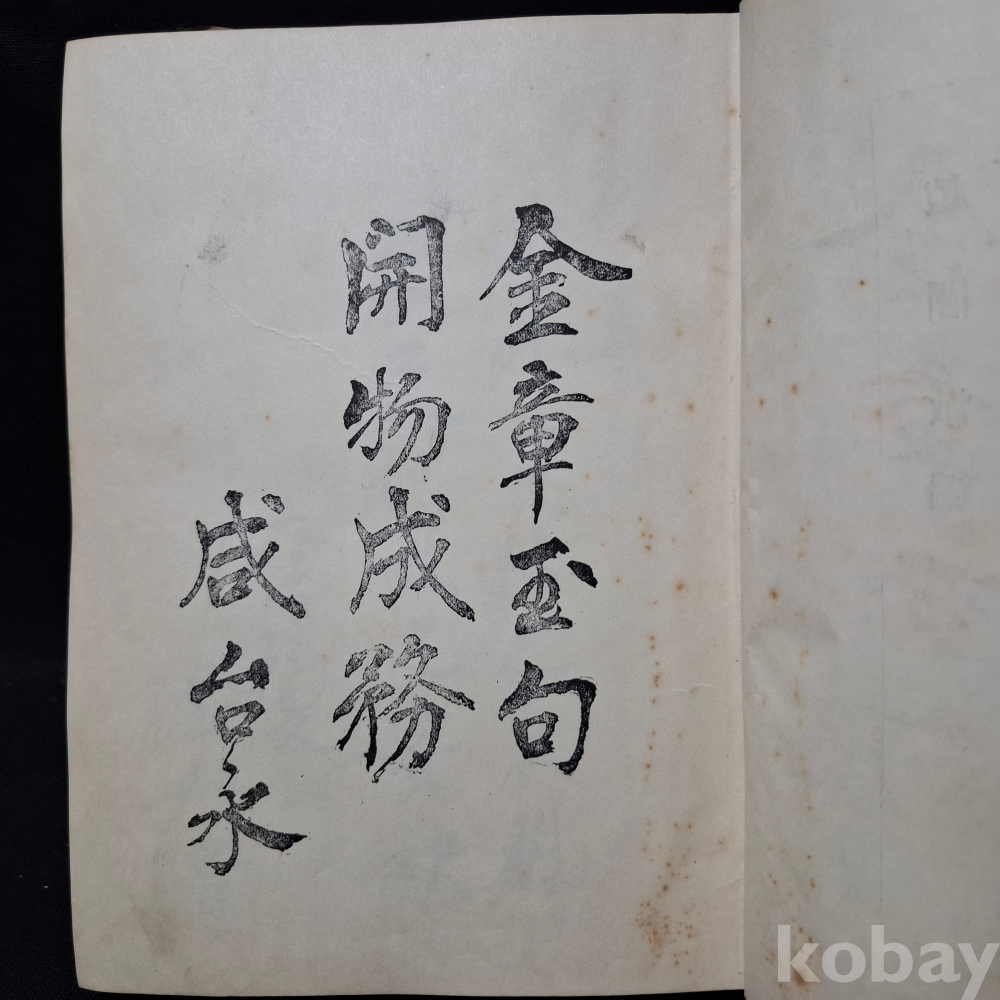 金章玉句
開物成務
咸台永
kobay